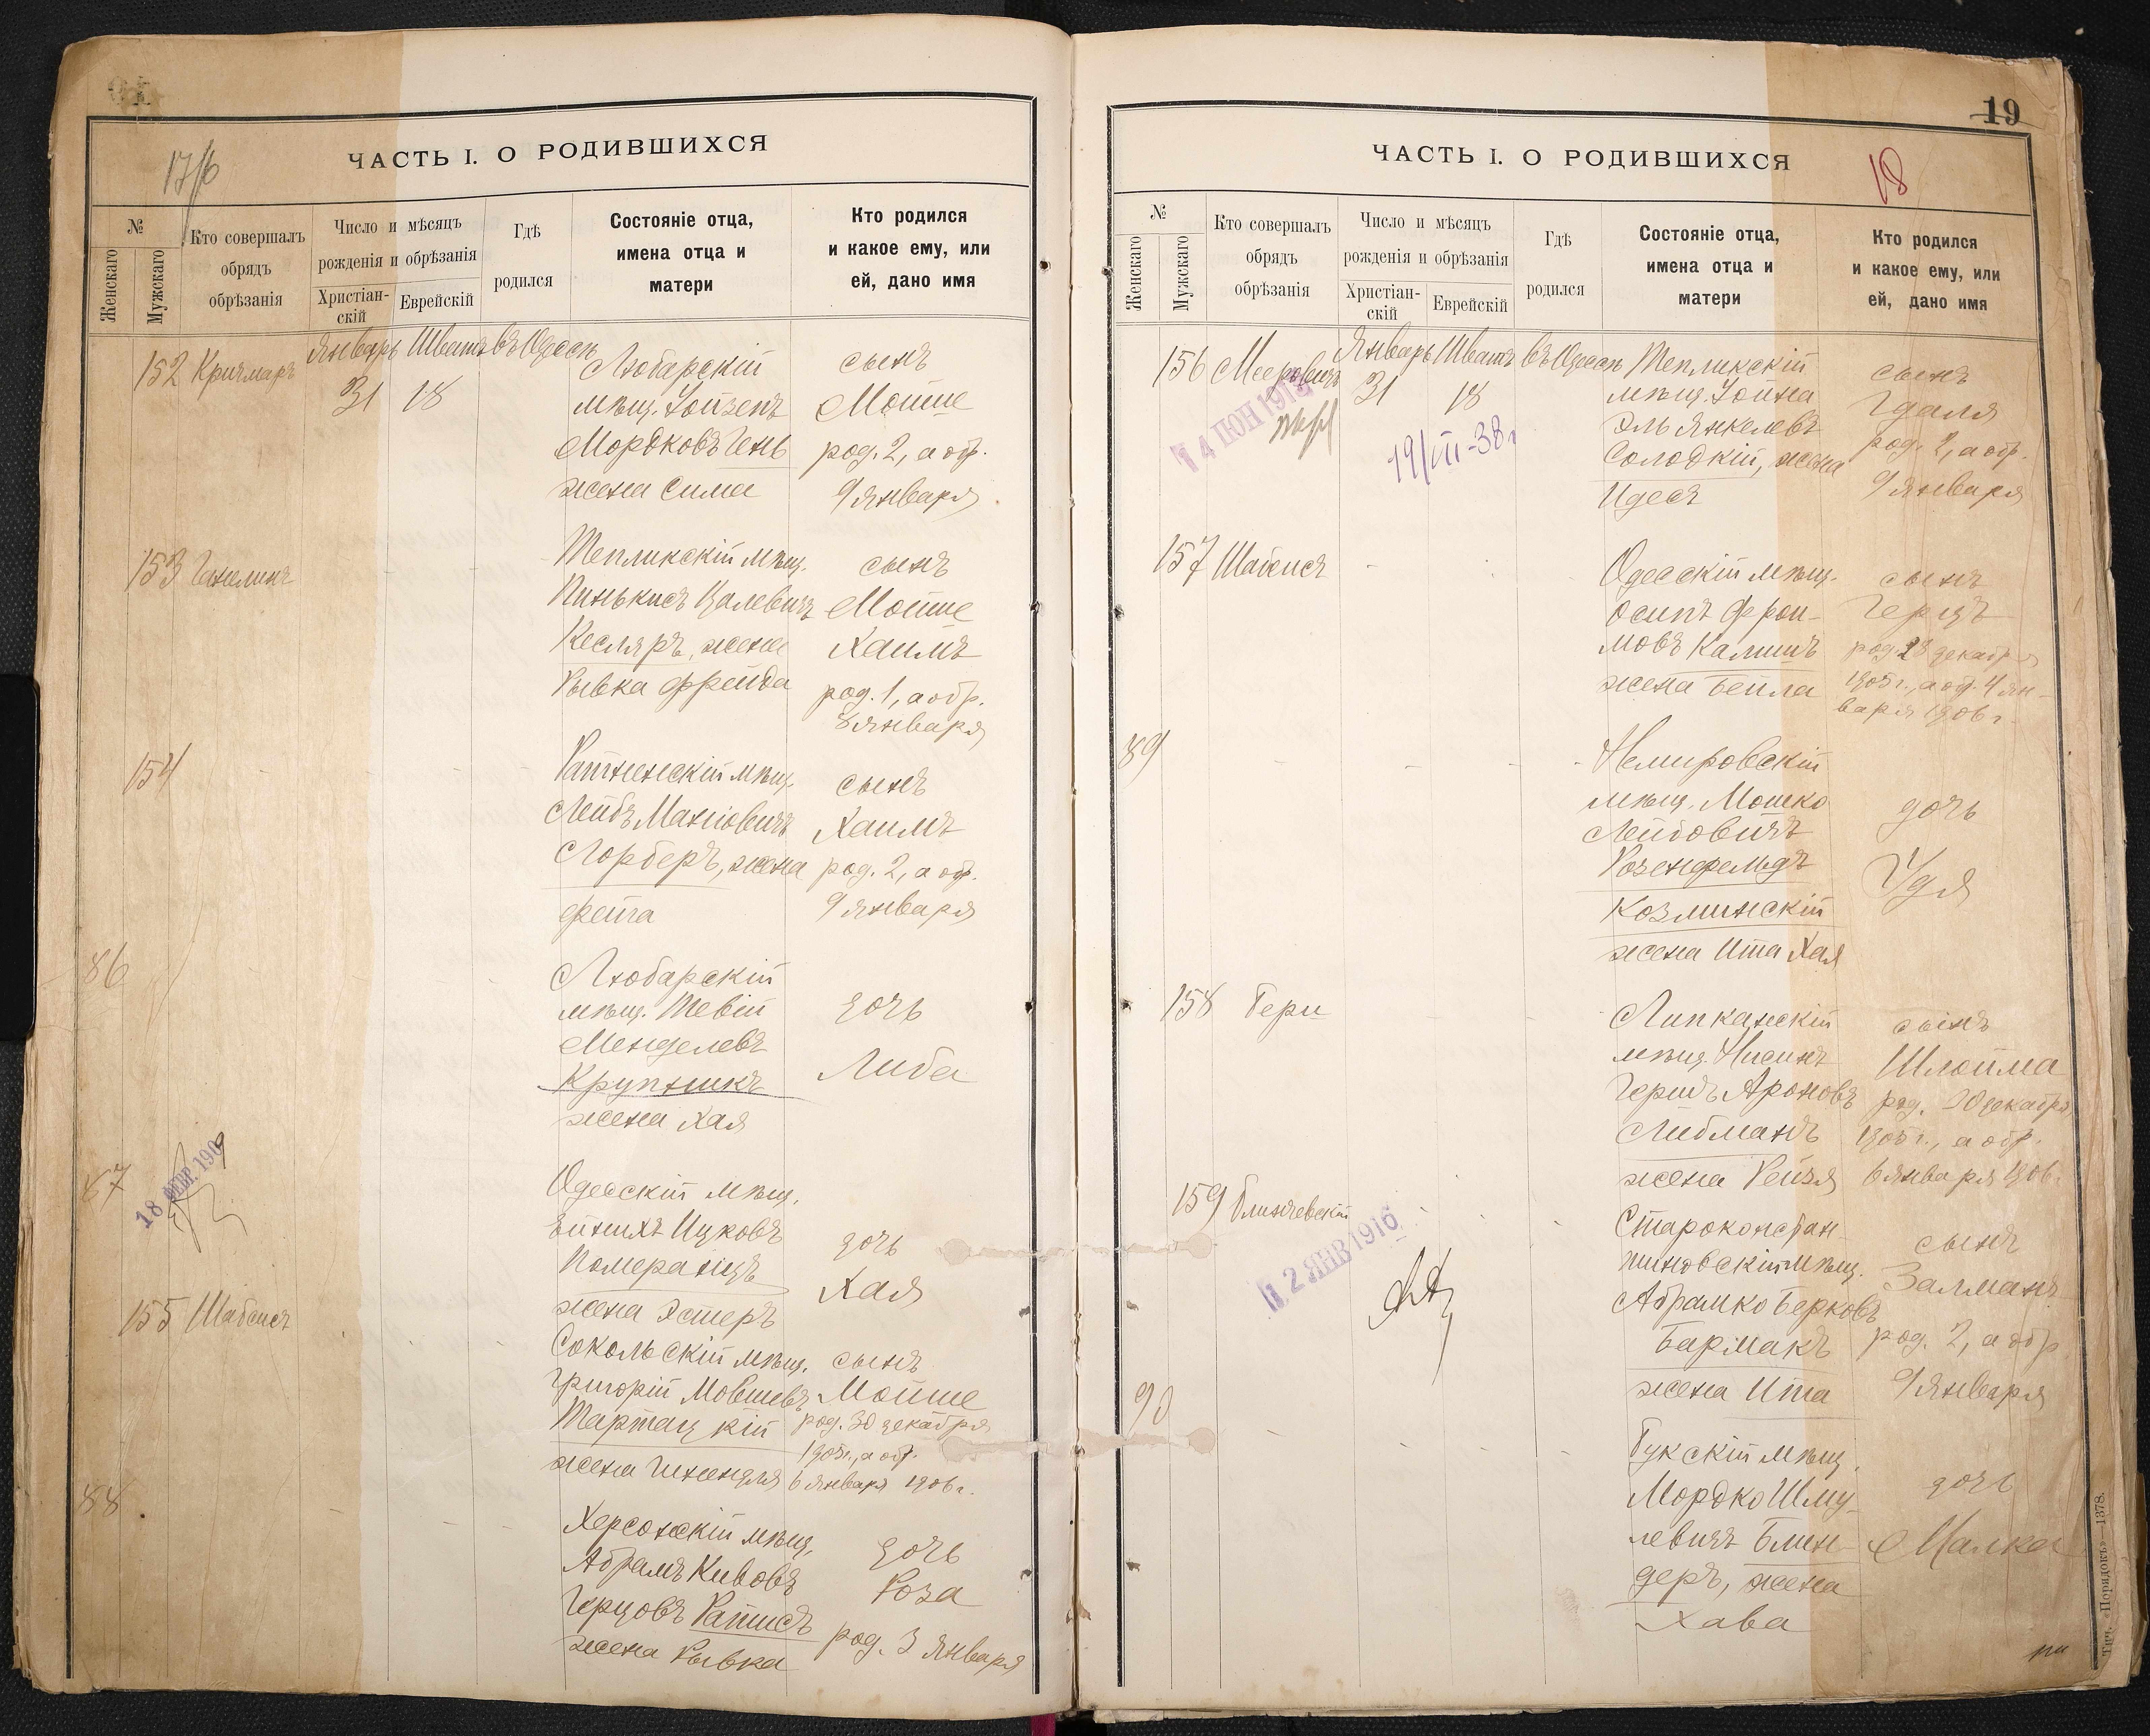 ЧАСТЬ I. О РОДИВШИХСЯ
17/б
№
Женскаго
Мужскаго
Кто совершалъ
обрядъ
обрѣзанія
Число и мѣсяцъ
рожденія и обрѣзанія
Христіан-
скій
Еврейскій
Гдѣ
родился
Состояніе отца,
имена отца и
матери
Кто родился
и какое ему, или
ей, дано имя
152 Кричмаръ
Январь Шватъ въ Одессѣ
31 18
Любарскій
мѣщ. Хойзепъ
Мордковъ Гень
жена Сима
сынъ
Мойше
род. 2, а обр.
9 января
153 Ганелинъ
Тепликскій мѣщ.
Пинькисъ Цалевичъ
Кесляръ, жена
Рывка Фрейда
сынъ
Мойше
Хаимъ
род. 1, а обр.
8 января
154
Ратненскій мѣщ.
Лейбъ Манiовичъ
Лорберъ, жена
Фейга
сынъ
Хаимъ
род. 2, а обр.
9 января
86
Любарскій
мѣщ. Тевій
Менделевъ
Крупникъ
жена Хая
дочь
Либа
87
18 ФЕВР. 1909
Одесскій мѣщ.
Ейнихъ Ицковъ
Померанцъ
жена Эстеръ
дочь
Хая
155 Шабсисъ
Сокольскій мѣщ.
Григорій Мовшевъ
Тартацкій
жена Гинендля
сынъ
Мойше
род. 30 декабря
1905 г., а обр.
6 января 1906 г.
88
Херсонскій мѣщ.
Абрамъ Кивовъ
Герцовъ Раписъ
жена Рывка
дочь
Роза
род. 3 января
19
ЧАСТЬ I. О РОДИВШИХСЯ
18
№
Женскаго
Мужскаго
Кто совершалъ
обрядъ
обрѣзанія
Число и мѣсяцъ
рожденія и обрѣзанія
Христіан-
скій
Еврейскій
Гдѣ
родился
Состояніе отца,
имена отца и
матери
Кто родился
и какое ему, или
ей, дано имя
156 Мееровичъ
Январь Шватъ въ Одессѣ
31 18
19/VII-38 г
Тепликскій
мѣщ. Хойна
Эль Янкелевъ
Солодкій, жена
Идесъ
сынъ
Гдаля
род. 2, а обр.
9 января
157 Шабсисъ
Одесскій мѣщ.
Осипъ Фрои-
мовъ Калишъ
жена Бейла
сынъ
Герцъ
род. 28 декабря
1905 г., а обр. 4 ян-
варя 1906 г.
89
Немировскій
мѣщ. Мошко
Лейбовичъ
Розенфельдъ
Козминскій
жена Ита Хая
дочь
Удя
158 Гери
Липканскій
мѣщ. Нисинъ
Гершъ Ароновъ
Либманъ
жена Рейзя
сынъ
Шлойма
род. 30 декабря
1905 г., а обр.
6 января 1906.
159 Блинчевскій
12 ЯНВ 1916
Староконстан-
тиновскій мѣщ.
Абрамко Берковъ
Бармакъ
жена Ита
сынъ
Залманъ
род. 2, а обр.
9 января
90
Букскій мѣщ.
Мордко Шму-
левичъ Блин-
деръ, жена
Хава
дочь
Малка
Тип. «Порядокъ» 1378.